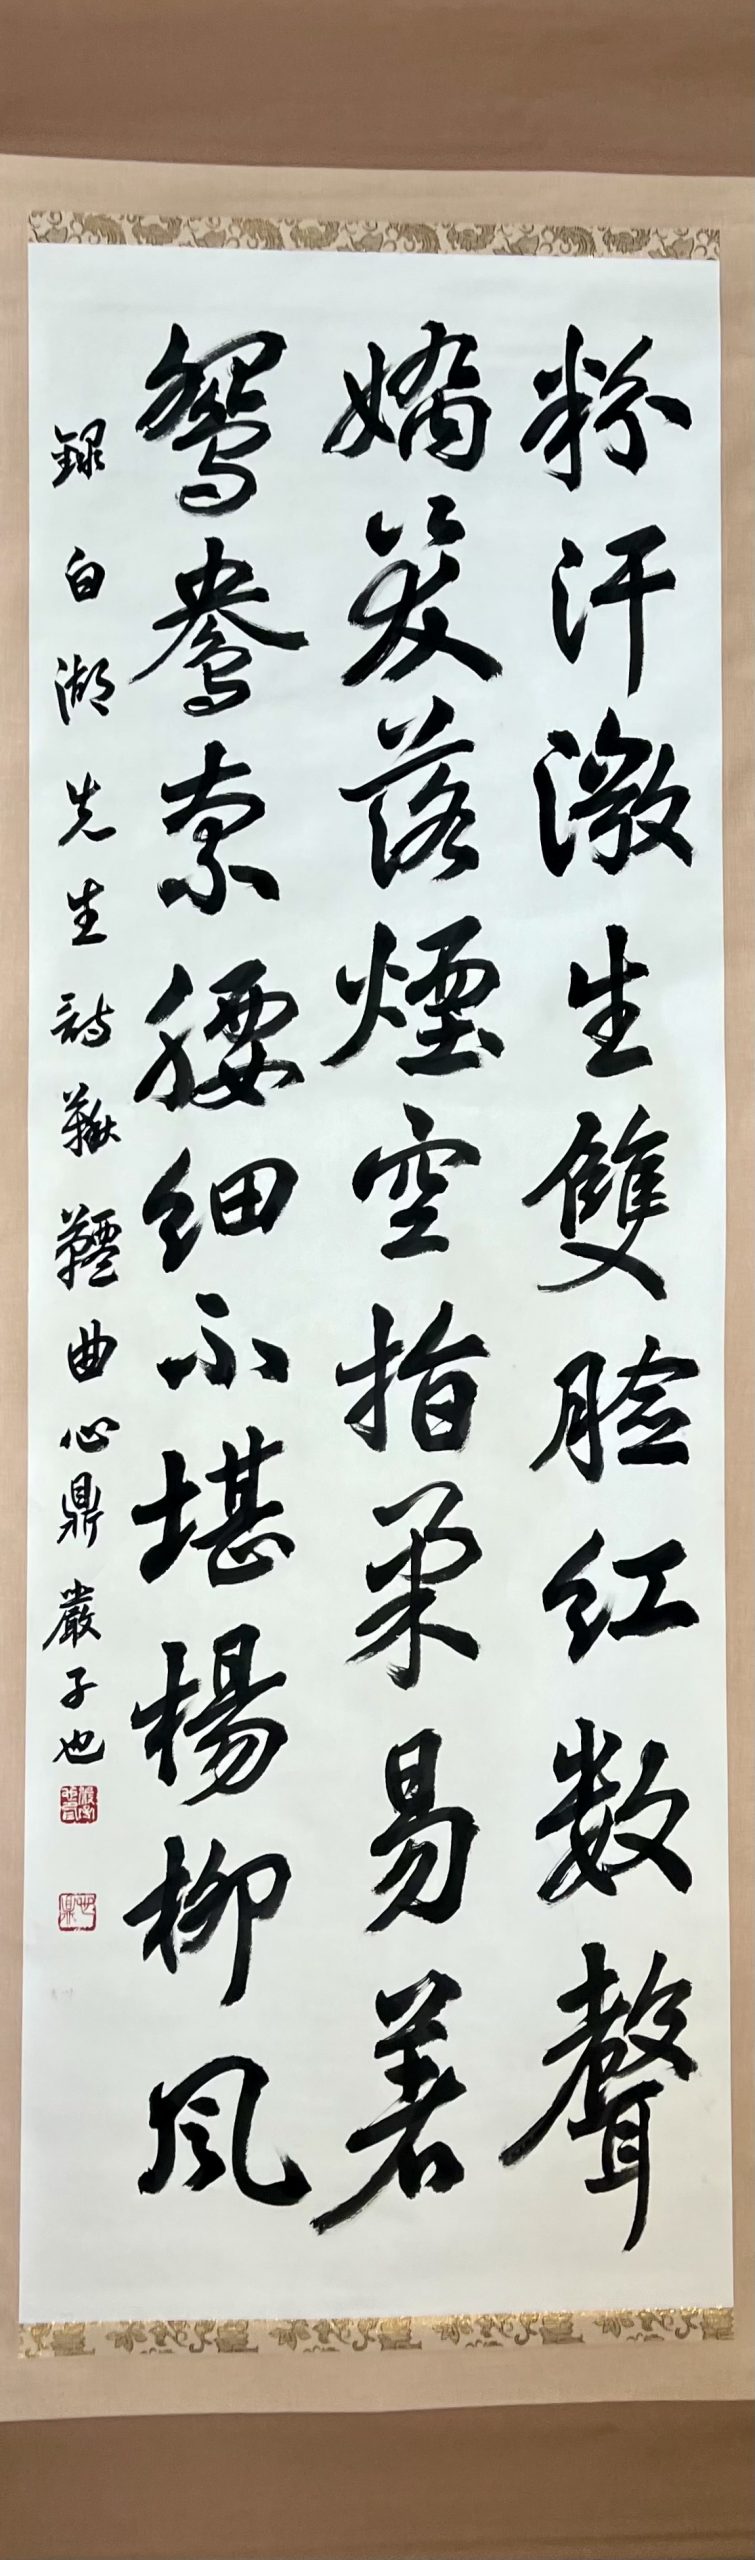 粉汗微生雙臉紅数聲
嬌笑落煙空指柔易著
鴛鴦索腰細不堪楊柳風
錄白湖先生詩鞦韆曲心鼎嚴子也